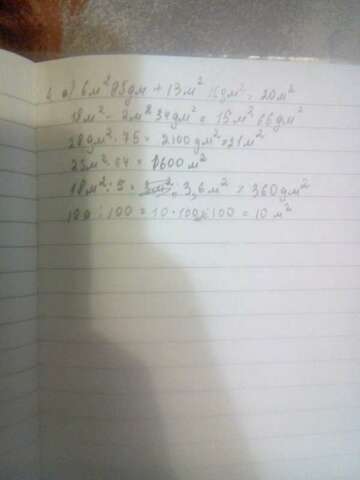 а) 6м² 85дм + 13м² 15дм² = 20м²
18м² - 2м² 34дм² = 15м² 66дм²
28дм² · 75 = 2100дм² = 21м²
25м² · 64 = 1600м²
18м² : 5 = 3,6м² = 360дм²
: 100 = 10 · 100 : 100 = 10м²